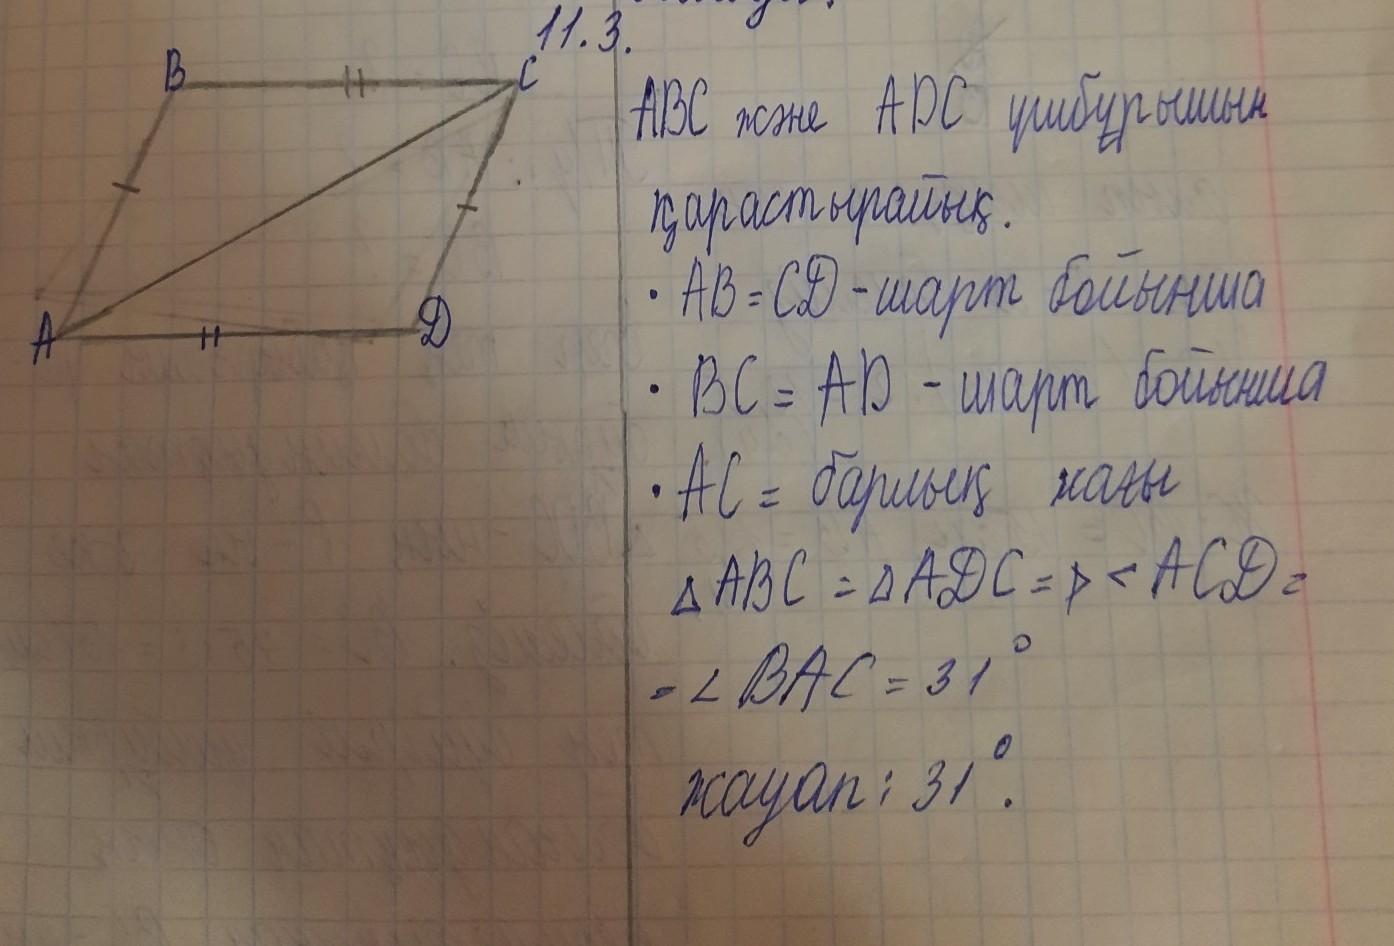 11.3.
B
C
A
D
ABC және ADC үшбұрышын
қарастырайық.
• AB = CD - шарт бойынша
• BC = AD - шарт бойынша
• AC = барлық жағы
△ ABC = △ ADC => < ACD =
= ∠ BAC = 31°
жауап: 31°.